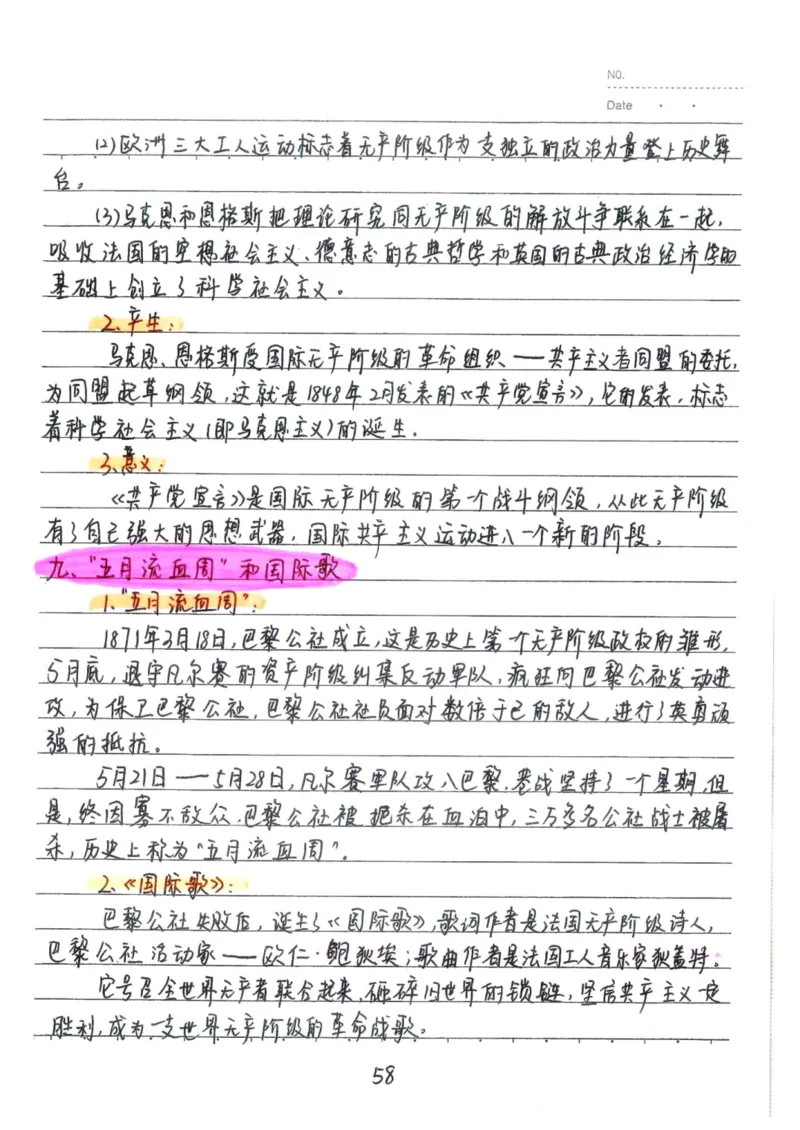 NO.
Date
(2)欧洲三大工人运动标志着无产阶级作为一支独立的政治力量登上历史舞
台。
(3)马克思和恩格斯把理论研究同无产阶级的解放斗争联系在一起,
吸收法国的空想社会主义、德意志的古典哲学和英国的古典政治经济学的
基础上创立了科学社会主义。
2.产生:
马克思、恩格斯受国际无产阶级的革命组织——共产主义者同盟的委托,
为同盟起草纲领,这就是1848年2月发表的《共产党宣言》,它的发表,标志
着科学社会主义(即马克思主义)的诞生.
3.意义:
《共产党宣言》是国际无产阶级的第一个战斗纲领,从此无产阶级
有了自己强大的思想武器,国际共产主义运动进入一个新的阶段。
九、"五月流血周"和国际歌
1."五月流血周":
1871年3月18日,巴黎公社成立,这是历史上第一个无产阶级政权的雏形,
5月底,退守凡尔赛的资产阶级纠集反动军队,疯狂向巴黎公社发动进
攻,为保卫巴黎公社,巴黎公社社员面对数倍于己的敌人,进行了英勇顽
强的抵抗。
5月21日——5月28日,凡尔赛军队攻入巴黎,巷战坚持了一个星期,但
是,终因寡不敌众,巴黎公社被扼杀在血泊中,三万多名公社战士被屠
杀,历史上称为"五月流血周".
2.《国际歌》:
巴黎公社失败后,诞生了《国际歌》,歌词作者是法国无产阶级诗人,
巴黎公社活动家——欧仁·鲍狄埃;歌曲作者是法国工人音乐家狄盖特。
它号召全世界无产者联合起来,砸碎旧世界的锁链,坚信共产主义一定
胜利,成为一支世界无产阶级的革命战歌。
58